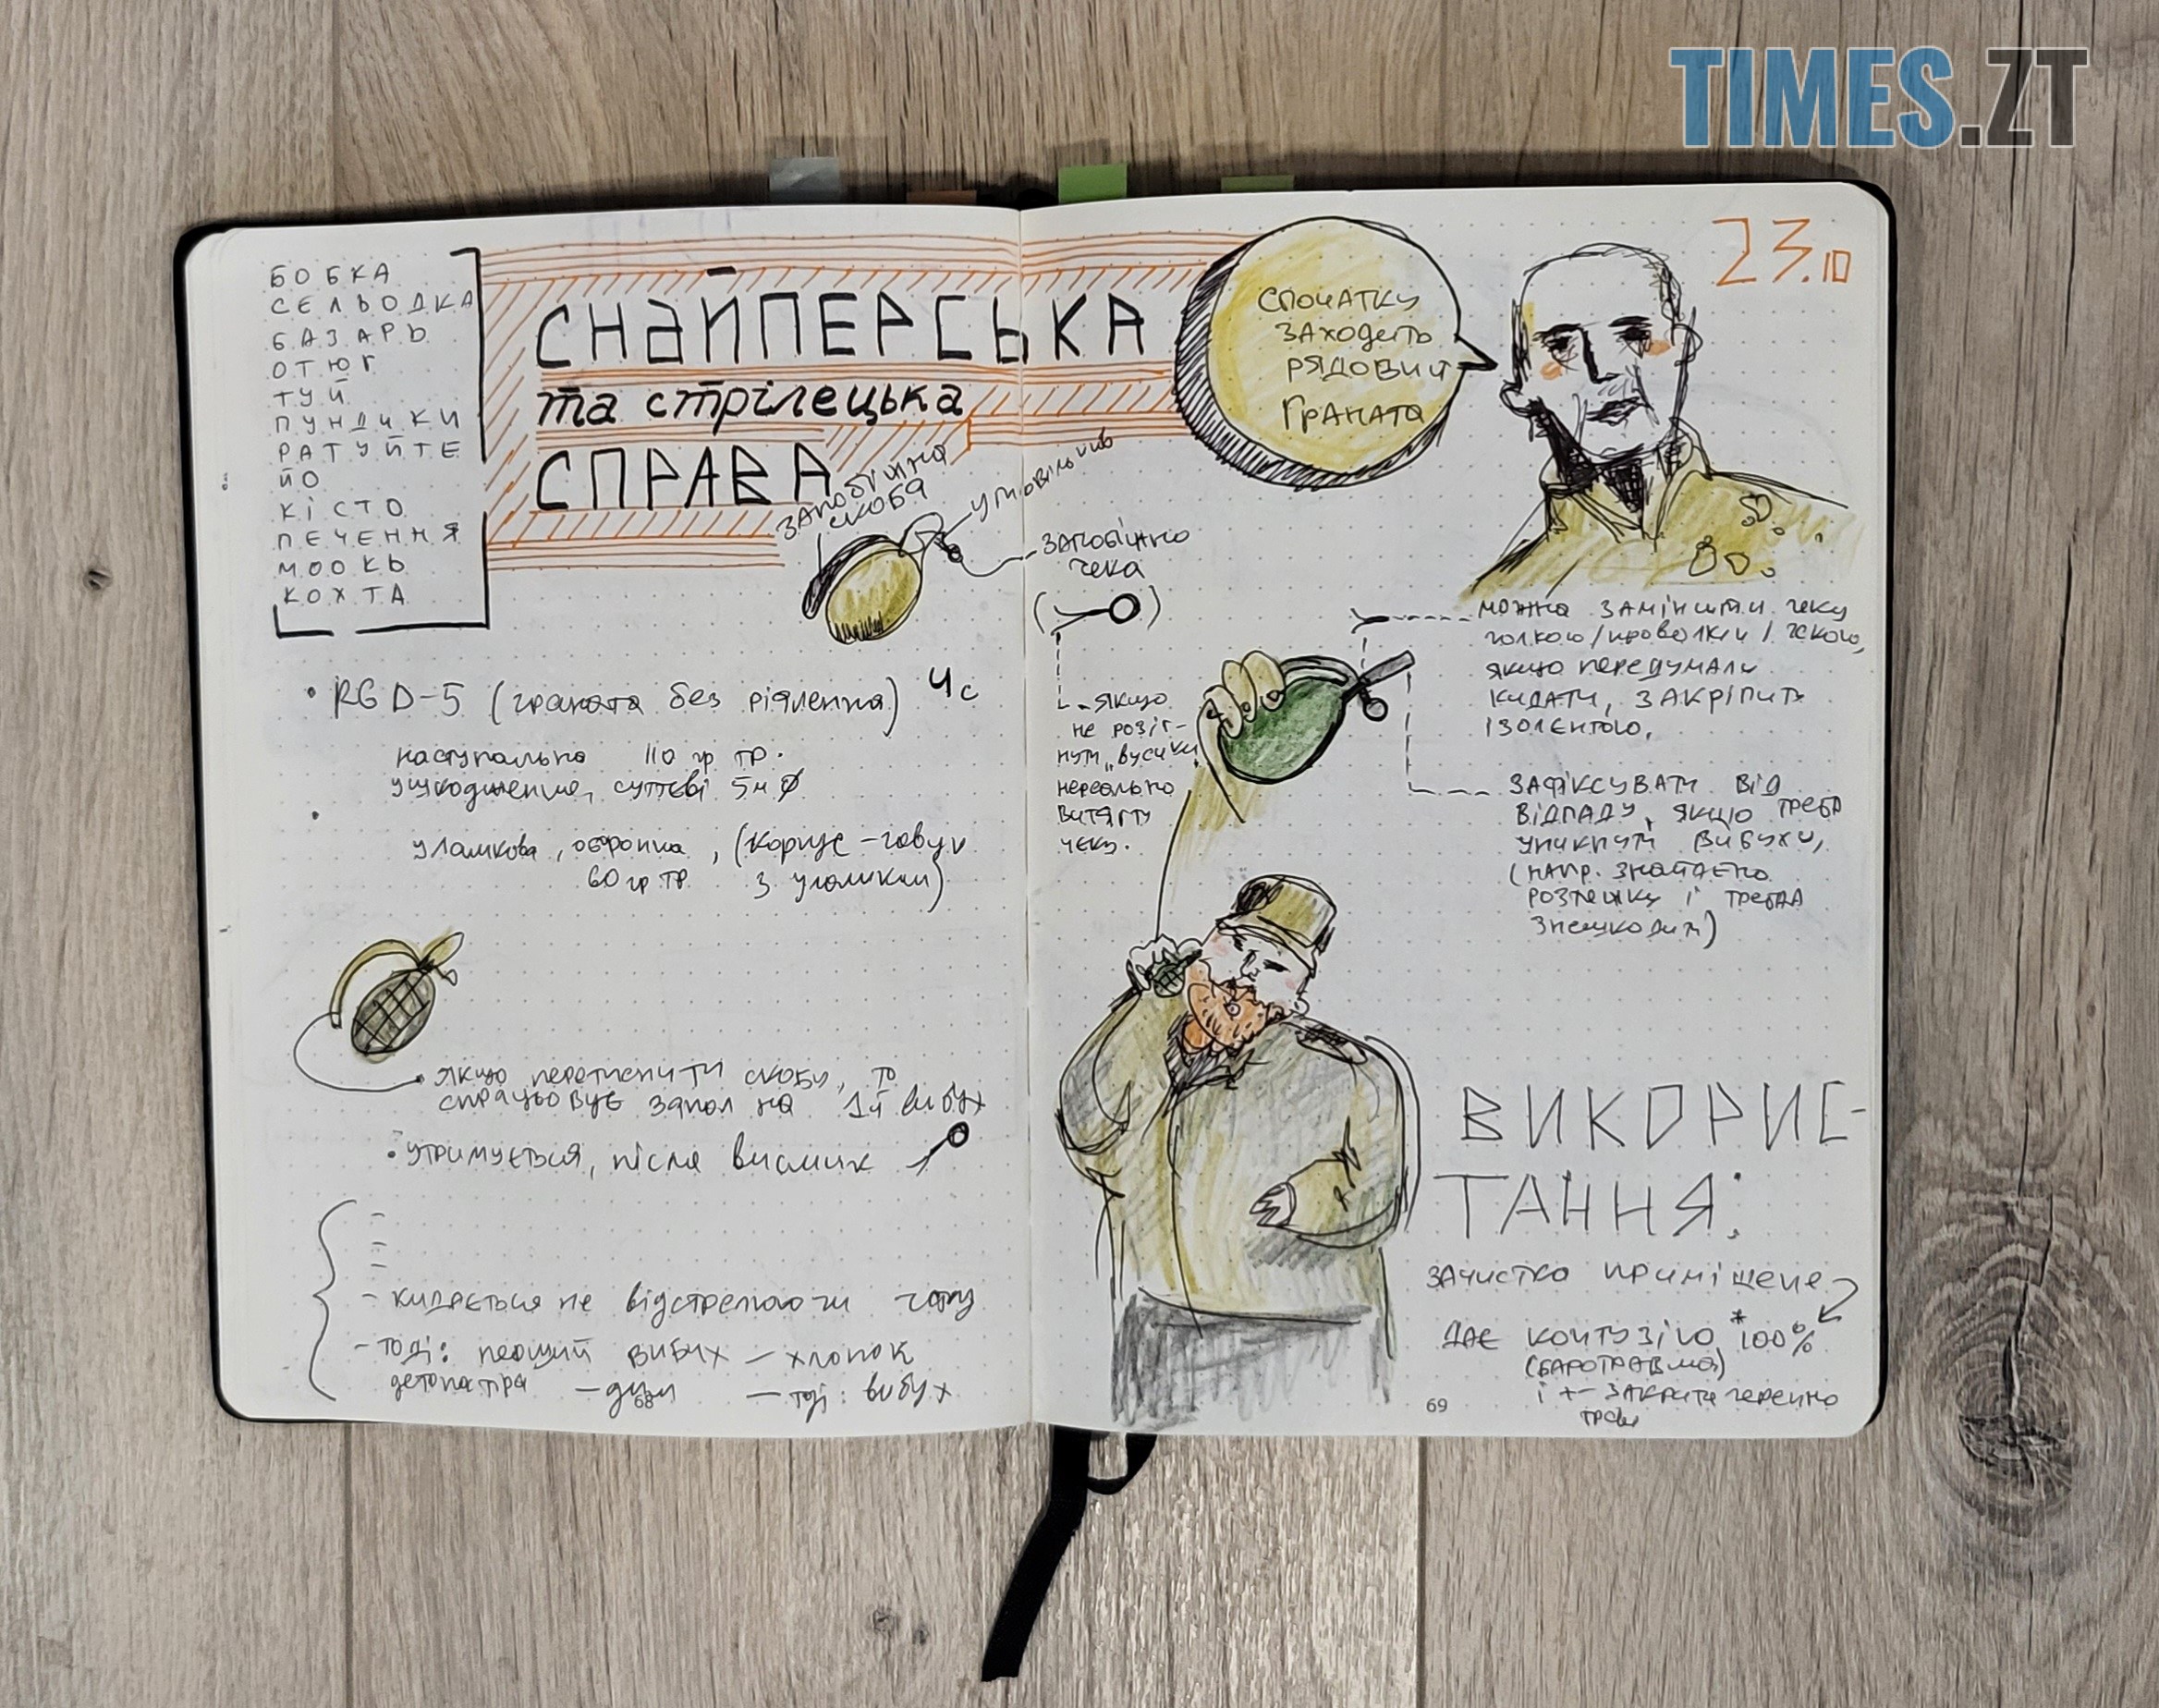 TIMES.ZT
23.10
БОБКА
СЕЛЬОДКА
БАЗАРЬ
ОТЮГ
ТУЙ
ПУНДИКИ
РАТУЙТЕ
ЙО
КІСТО
ПЕЧЕННЯ
МООКЬ
КОХТА
СНАЙПЕРСЬКА
та стрілецька
СПРАВА
ЗАПОБІЖНА
СКОБА
RGD-5 (граната без
4с
наступальна 110 гр тр.
суттєві 5м
уламкова, оборонна, (корпус
60 гр тр
якщо перетиснути скобу, то
спрацьовує запал на вибух
утримується, після
- кидається не
- тоді: перший вибух — хлопок
— тоді: вибух
68
СПОЧАТКУ
ЗАХОДЕТЬ
РЯДОВИЙ
ГРАНАТА
чека
- якщо
не розіг-
нути „вусики
нереально
витягти
чеку.
можна замінити чеку
якщо передумали
кидати, закріпить
ізолентою.
зафіксувати від
відпаду, якщо треба
уникнути вибуху,
(напр. знайдено
розтяжку і треба
знешкодити)
ВИКОРИС-
ТАННЯ:
зачистка
дає контузію *100%
(баротравма)
69